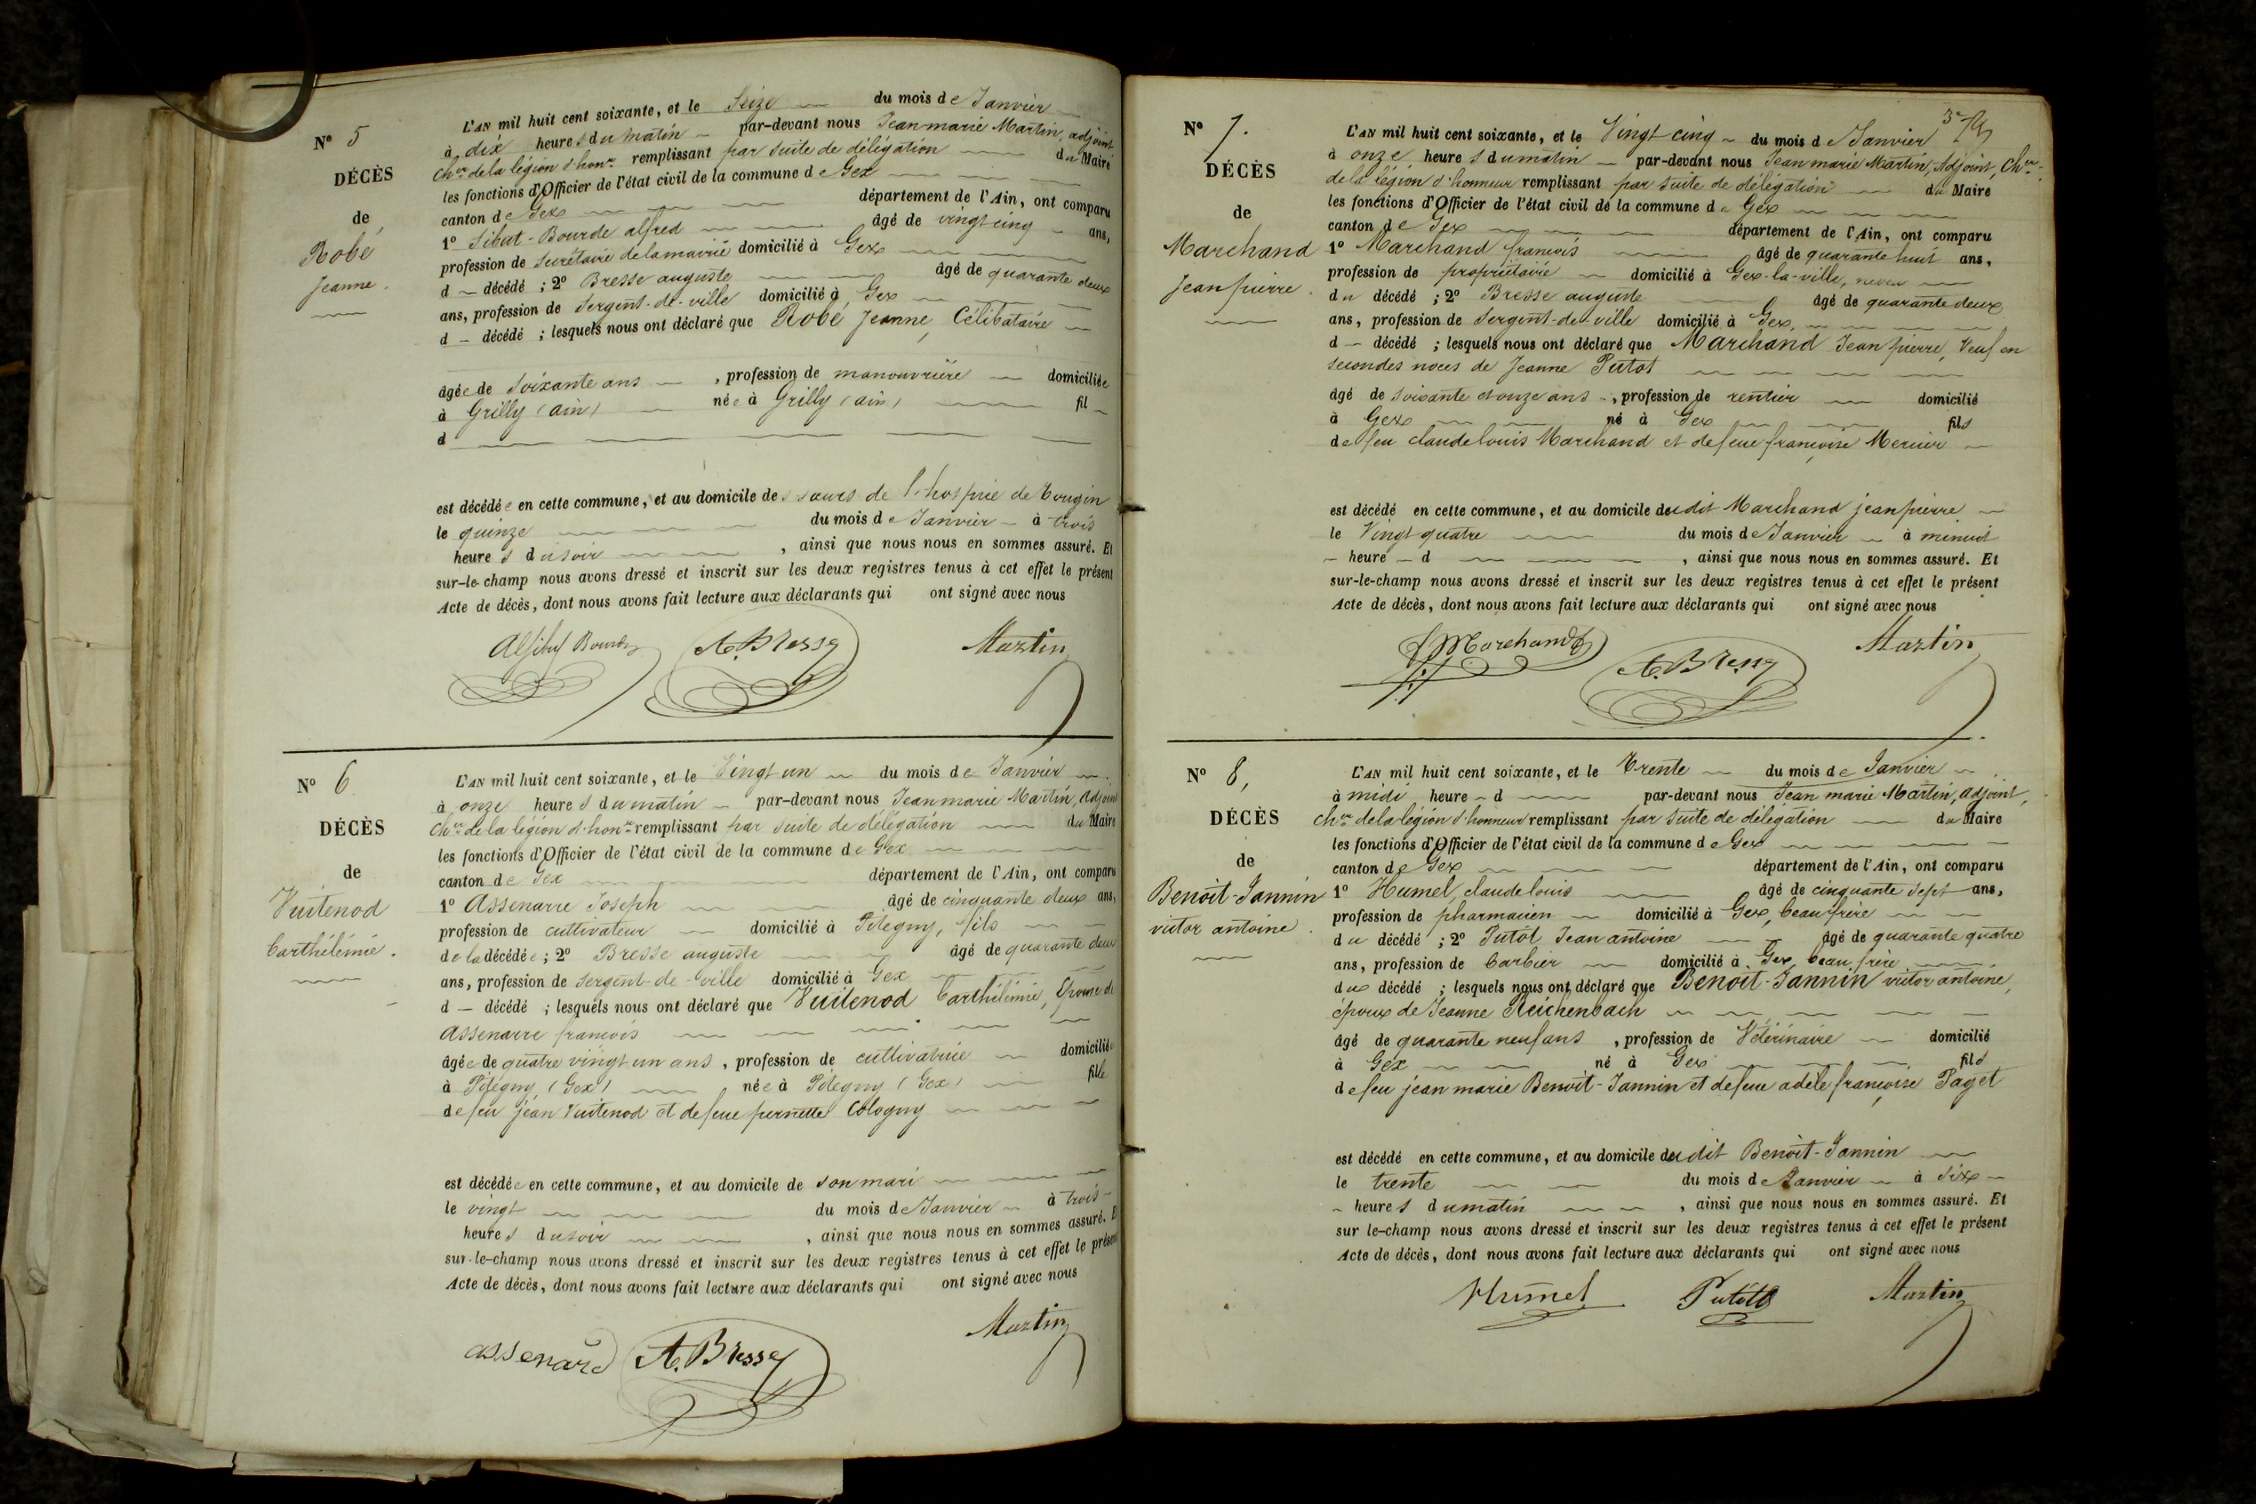 N° 5
DÉCÈS
de
Robé
Jeanne.
L'AN mil huit cent soixante, et le Seize du mois de Janvier
à dix heures du matin par-devant nous Jean marie Martin, adjoint
Ch.er de la légion d'hon.r remplissant par suite de délégation du Maire
les fonctions d'Officier de l'état civil de la commune de Gex
canton de Gex département de l'Ain, ont comparu
1° Sibut-Bourde alfred âgé de vingt cinq ans,
profession de secrétaire de la mairie domicilié à Gex
d décédé ; 2° Bresse auguste âgé de quarante deux
ans, profession de Sergent-de-ville domicilié à Gex
d décédé ; lesquels nous ont déclaré que Robé Jeanne, Célibataire
âgée de soixante ans, profession de manouvrière domiciliée
à Grilly (ain) née à Grilly (ain) fil
d
est décédée en cette commune, et au domicile des sœurs de l'hospice de Tougin
le quinze du mois de Janvier à trois
heures du soir, ainsi que nous nous en sommes assuré. Et
sur-le-champ nous avons dressé et inscrit sur les deux registres tenus à cet effet le présent
Acte de décès, dont nous avons fait lecture aux déclarants qui ont signé avec nous
A. Bresse Martin
N° 6
DÉCÈS
de
Vuitenod
barthélémie.
L'AN mil huit cent soixante, et le Vingt un du mois de Janvier
à onze heures du matin par-devant nous Jean marie Martin, Adjoint
Ch.er de la légion d'hon.r remplissant par suite de délégation du Maire
les fonctions d'Officier de l'état civil de la commune de Gex
canton de Gex département de l'Ain, ont comparu
1° Assenarre Joseph âgé de cinquante deux ans,
profession de cultivateur domicilié à Pitegny, fils
de la décédée ; 2° Bresse auguste âgé de quarante deux
ans, profession de sergent-de-ville domicilié à Gex
d décédé ; lesquels nous ont déclaré que Vuitenod barthélémie, Epouse de
Assenarre françois
âgée de quatre vingt un ans, profession de cultivatrice domiciliée
à Pitegny (Gex) née à Pitegny (Gex) fille
de feu jean Vuitenod et de feue pernette Cologny
est décédée en cette commune, et au domicile de son mari
le vingt du mois de Janvier à trois
heures du soir, ainsi que nous nous en sommes assuré. Et
sur-le-champ nous avons dressé et inscrit sur les deux registres tenus à cet effet le présent
Acte de décès, dont nous avons fait lecture aux déclarants qui ont signé avec nous
assenard A. Bresse Martin
N° 7.
DÉCÈS
de
Marchand
Jean pierre.
L'AN mil huit cent soixante, et le Vingt cinq du mois de Janvier
à onze heures du matin par-devant nous Jean marie Martin, Adjoint, Ch.er
de la légion d'honneur remplissant par suite de délégation du Maire
les fonctions d'Officier de l'état civil de la commune de Gex
canton de Gex département de l'Ain, ont comparu
1° Marchand françois âgé de quarante huit ans,
profession de propriétaire domicilié à Gex-la-ville, neveu
du décédé ; 2° Bresse auguste âgé de quarante deux
ans, profession de Sergent-de-ville domicilié à Gex,
d décédé ; lesquels nous ont déclaré que Marchand Jean pierre, Veuf en
secondes noces de Jeanne Putot
âgé de soixante et onze ans, profession de rentier domicilié
à Gex né à Gex fils
de feu claude louis Marchand et de feue françoise Mercier
est décédé en cette commune, et au domicile dudit Marchand jean pierre
le Vingt quatre du mois de Janvier à minuit
heure d, ainsi que nous nous en sommes assuré. Et
sur-le-champ nous avons dressé et inscrit sur les deux registres tenus à cet effet le présent
Acte de décès, dont nous avons fait lecture aux déclarants qui ont signé avec nous
f Marchand A. Bresse Martin
N° 8,
DÉCÈS
de
Benoît-Jannin
victor antoine.
L'AN mil huit cent soixante, et le Trente du mois de Janvier
à midi heure d par-devant nous Jean marie Martin, adjoint,
Ch.er de la légion d'honneur remplissant par suite de délégation du Maire
les fonctions d'Officier de l'état civil de la commune de Gex
canton de Gex département de l'Ain, ont comparu
1° Humel, claude louis âgé de cinquante sept ans,
profession de pharmacien domicilié à Gex, beau frère
du décédé ; 2° Putôt Jean antoine âgé de quarante quatre
ans, profession de barbier domicilié à Gex, beau frère
du décédé ; lesquels nous ont déclaré que Benoît-Jannin victor antoine,
époux de Jeanne Reichenbach
âgé de quarante neuf ans, profession de Vétérinaire domicilié
à Gex né à Gex fils
de feu jean marie Benoît-Jannin et de feue adèle françoise Paget
est décédé en cette commune, et au domicile dudit Benoît-Jannin
le trente du mois de Janvier à six
heures du matin, ainsi que nous nous en sommes assuré. Et
sur le-champ nous avons dressé et inscrit sur les deux registres tenus à cet effet le présent
Acte de décès, dont nous avons fait lecture aux déclarants qui ont signé avec nous
Humel Putôt Martin